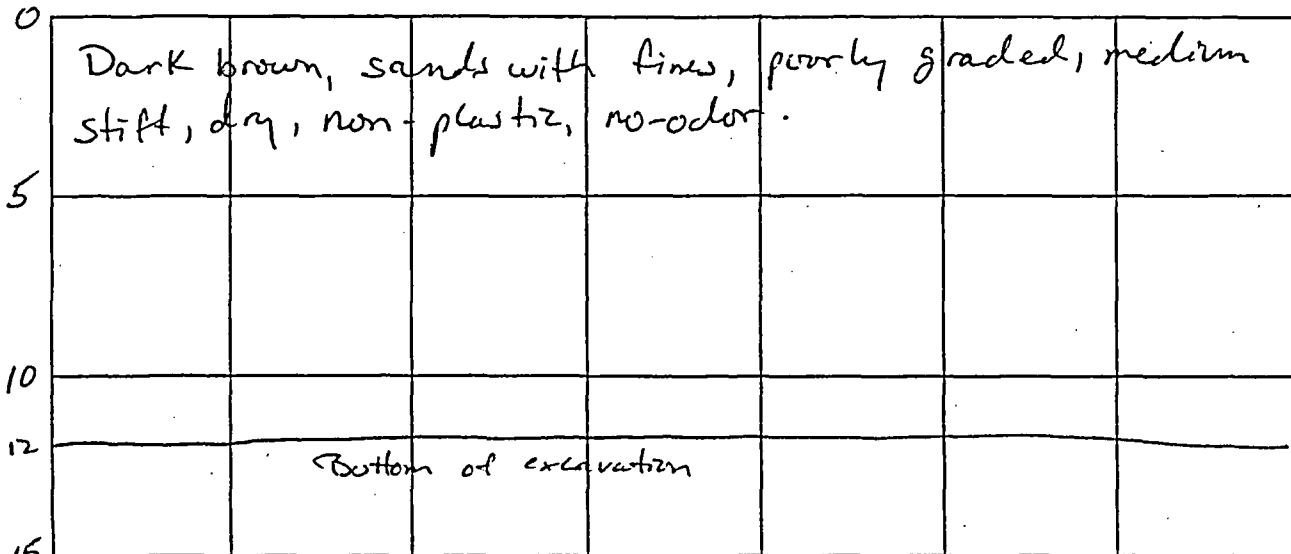 0
Dark brown, sands with fines, poorly graded, medium
stiff, dry, non-plastic, no-odor.
5
10
12
Bottom of excavation
15